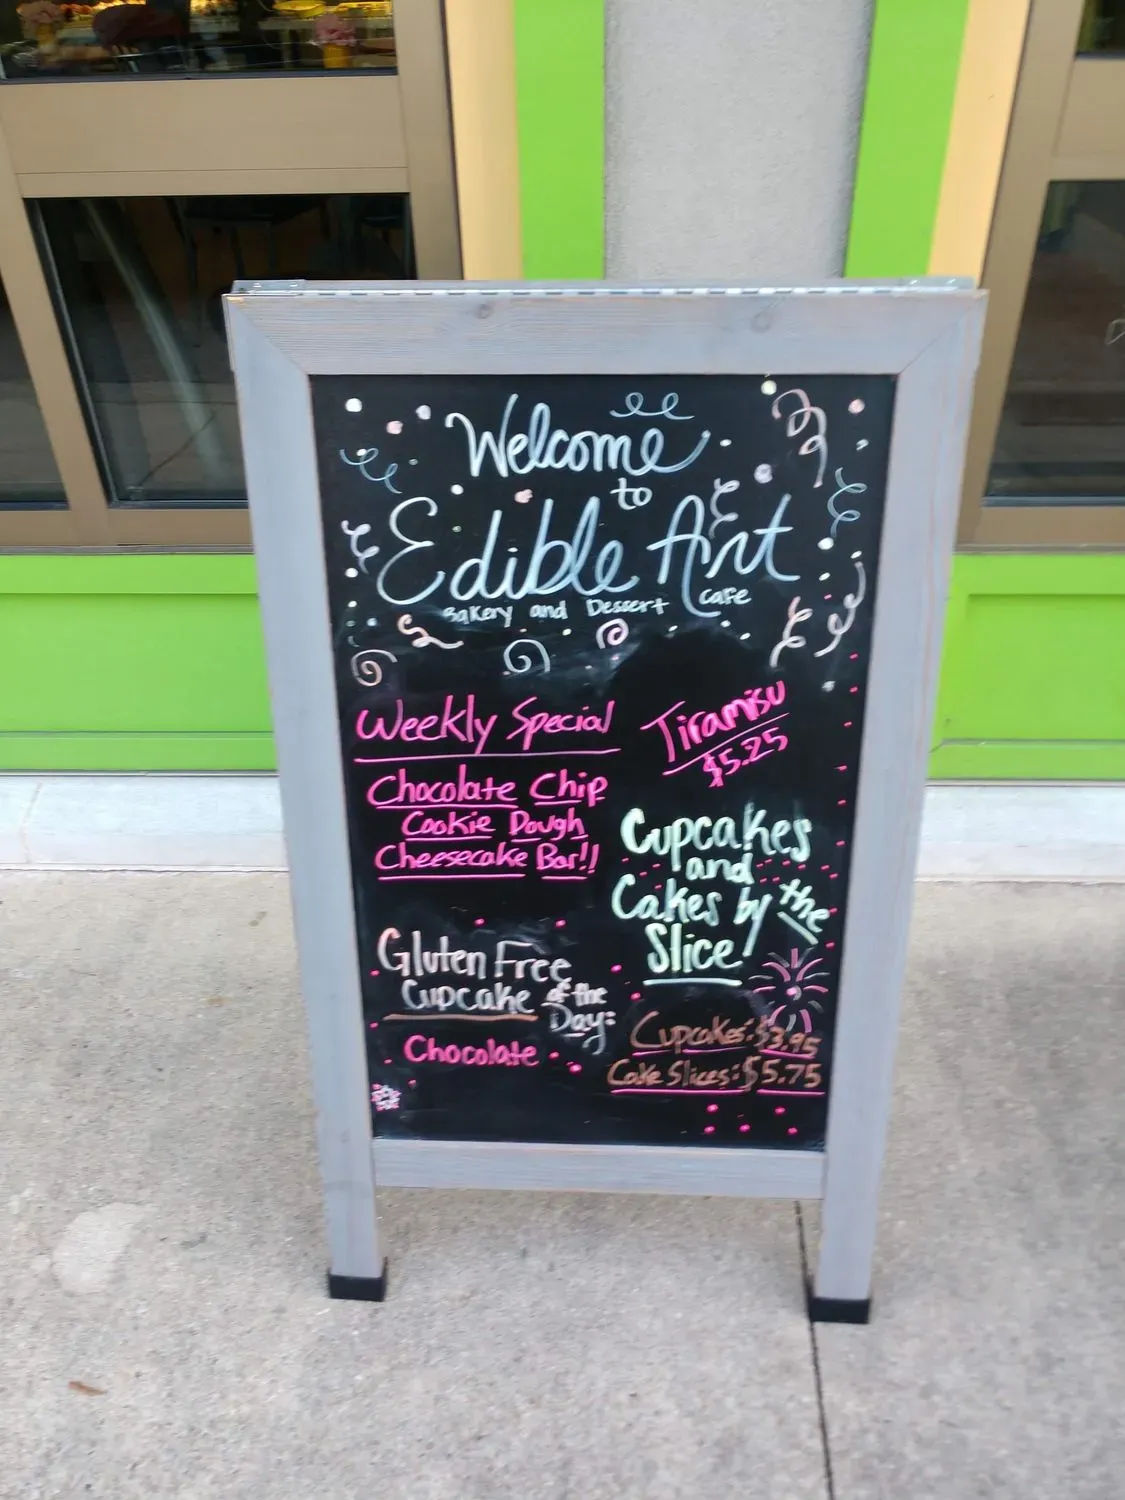 Welcome
to
Edible Art
Bakery and Dessert Cafe
Weekly Special
Chocolate Chip
Cookie Dough
Cheesecake Bar!!
Tiramisu
$5.25
Cupcakes
and
Cakes by the
Slice
Gluten Free
Cupcake of the
Day:
Chocolate
Cupcakes: $3.95
Cake Slices: $5.75